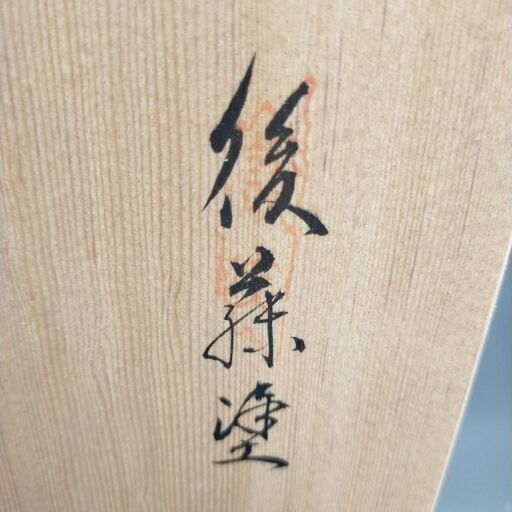 後藤塗